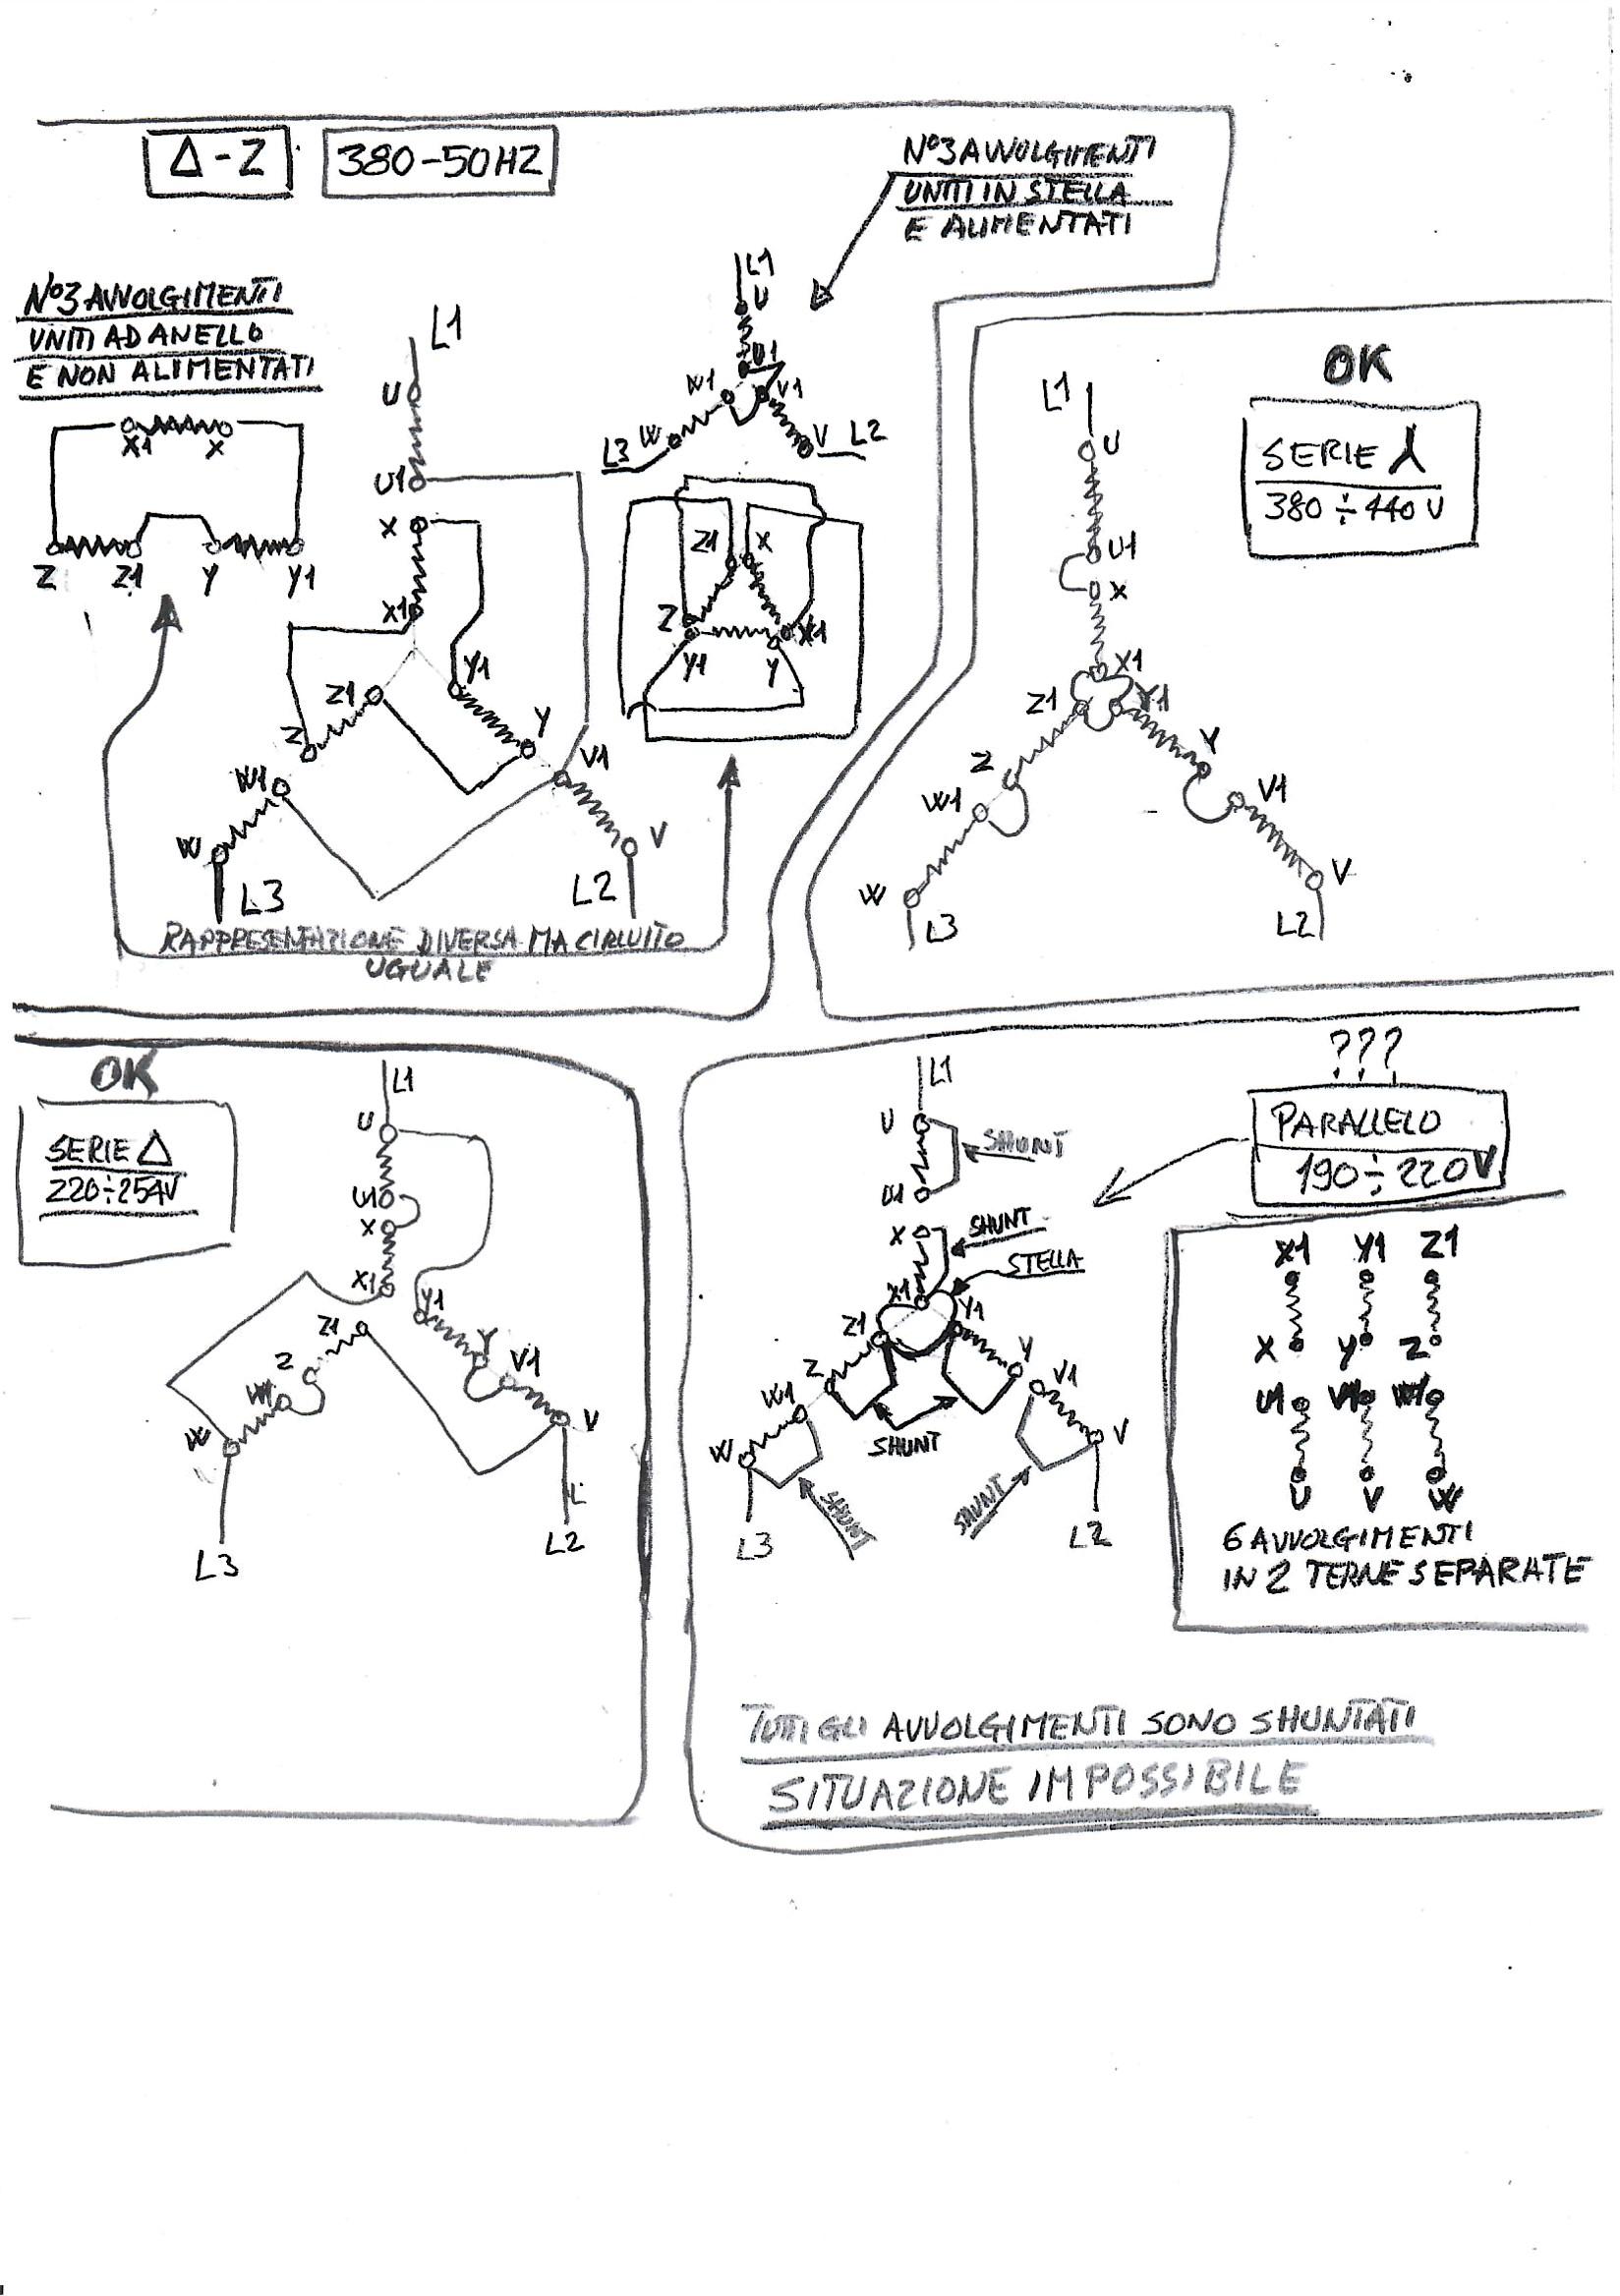 Δ-Z
380-50HZ
N°3 AVVOLGIMENTI
UNITI IN STELLA
E ALIMENTATI
N°3 AVVOLGIMENTI
UNITI AD ANELLO
E NON ALIMENTATI
X1 X
Z Z1 Y Y1
L1
U
U1
X
X1
Y1
Z1
Y
Z
V1
W1
W
V
L3
L2
L1
U
U1
W1
V1
W
V
L3
L2
Z1 X
Z
X1
Y1
Y
RAPPRESENTAZIONE DIVERSA MA CIRCUITO
UGUALE
OK
SERIE Y
380÷440 V
L1
U
U1
X
X1
Z1
Y1
Z
Y
W1
V1
W
V
L3
L2
OK
SERIE Δ
220÷254V
L1
U
U1
X
X1
Y1
Z1
Y
Z
V1
W1
W
V
L
L3
L2
???
PARALLELO
190÷220V
L1
U
SHUNT
U1
X
SHUNT
STELLA
X1
Y1
Z1
Z
Y
V1
W1
W
V
SHUNT
SHUNT
SHUNT
L3
L2
X1 Y1 Z1
X Y Z
U1 V1 W1
U V W
6 AVVOLGIMENTI
IN 2 TERNE SEPARATE
TUTTI GLI AVVOLGIMENTI SONO SHUNTATI
SITUAZIONE IMPOSSIBILE